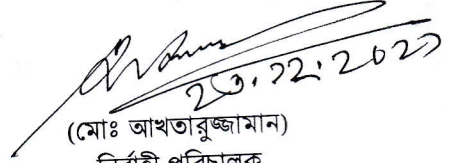 ২৩.১২.২০২১
(মোঃ আখতারুজ্জামান)
নির্বাহী পরিচালক